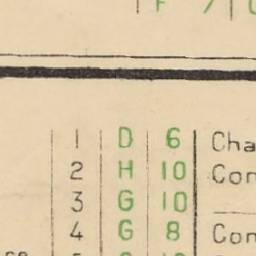 F 7
1 D 6 Cha
2 H 10 Con
3 G 10
4 G 8 Con